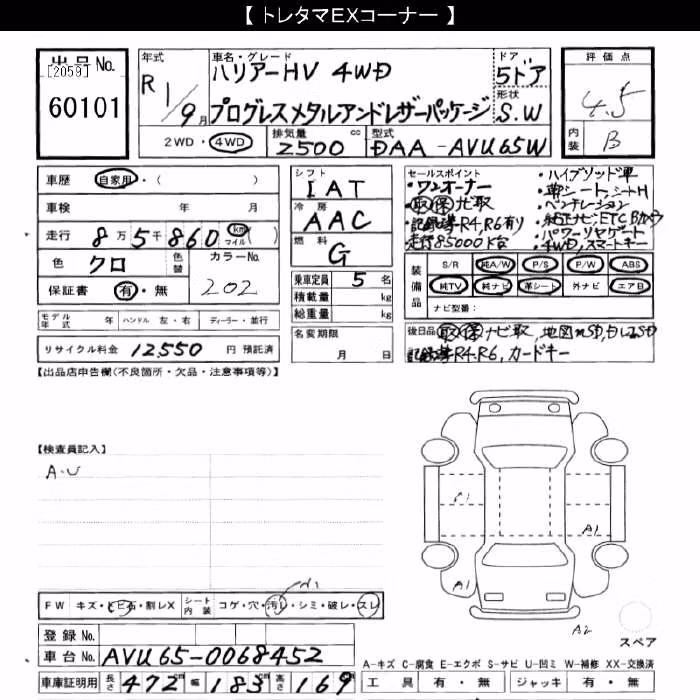 【 トレタマEXコーナー 】
出品 No.
[2059]
60101
年式
R 1/9 月
車名・グレード
ハリアーHV 4WD
プログレスメタルアンドレザーパッケージ
ドア
5ドア
形状
S.W
2WD・4WD
排気量
2500 cc
型式
DAA-AVU65W
評価点
4.5
内装
B
車歴 自家用・( )
車検 年 月
走行 8万5千860 km マイル ( )
色 クロ
色替
カラーNo.
202
保証書 有・無
モデル年式 年 ハンドル 左・右 ディーラー・並行
リサイクル料金 12,550 円 預託済
シフト
IAT
冷房
AAC
燃料
G
乗車定員 5 名
積載量 kg
総重量 kg
名変期限
月 日
セールスポイント
・ワンオーナー
・取保ナビ取
・記録簿R4,R6有り
・走行85000k台
・ハイブリッド車
・革シート,シートH
・ベンチレーション
・純正ナビ,ETC,Bカメラ
・パワーリヤゲート
・4WD,スマートキー
装備品
S/R 純A/W P/S P/W ABS
純TV 純ナビ 革シート 外ナビ エアB
ナビ型番:
後日品 取保ナビ取,
記録簿R4.R6,カードキー
【出品店申告欄(不良箇所・欠品・注意事項等)】
【検査員記入】
A.U
A1
A1
A2
FW キズ・トビ石・割レX
シート内装 コゲ・穴・汚レ・シミ・破レ・スレ
登録 No.
車台 No. AVU65-0068452
車庫証明用 長さ 472 幅 183 高さ 169
スペア
A-キズ C-腐食 E-エクボ S-サビ U-凹ミ W-補修 XX-交換済
工具 有・無 ジャッキ 有・無